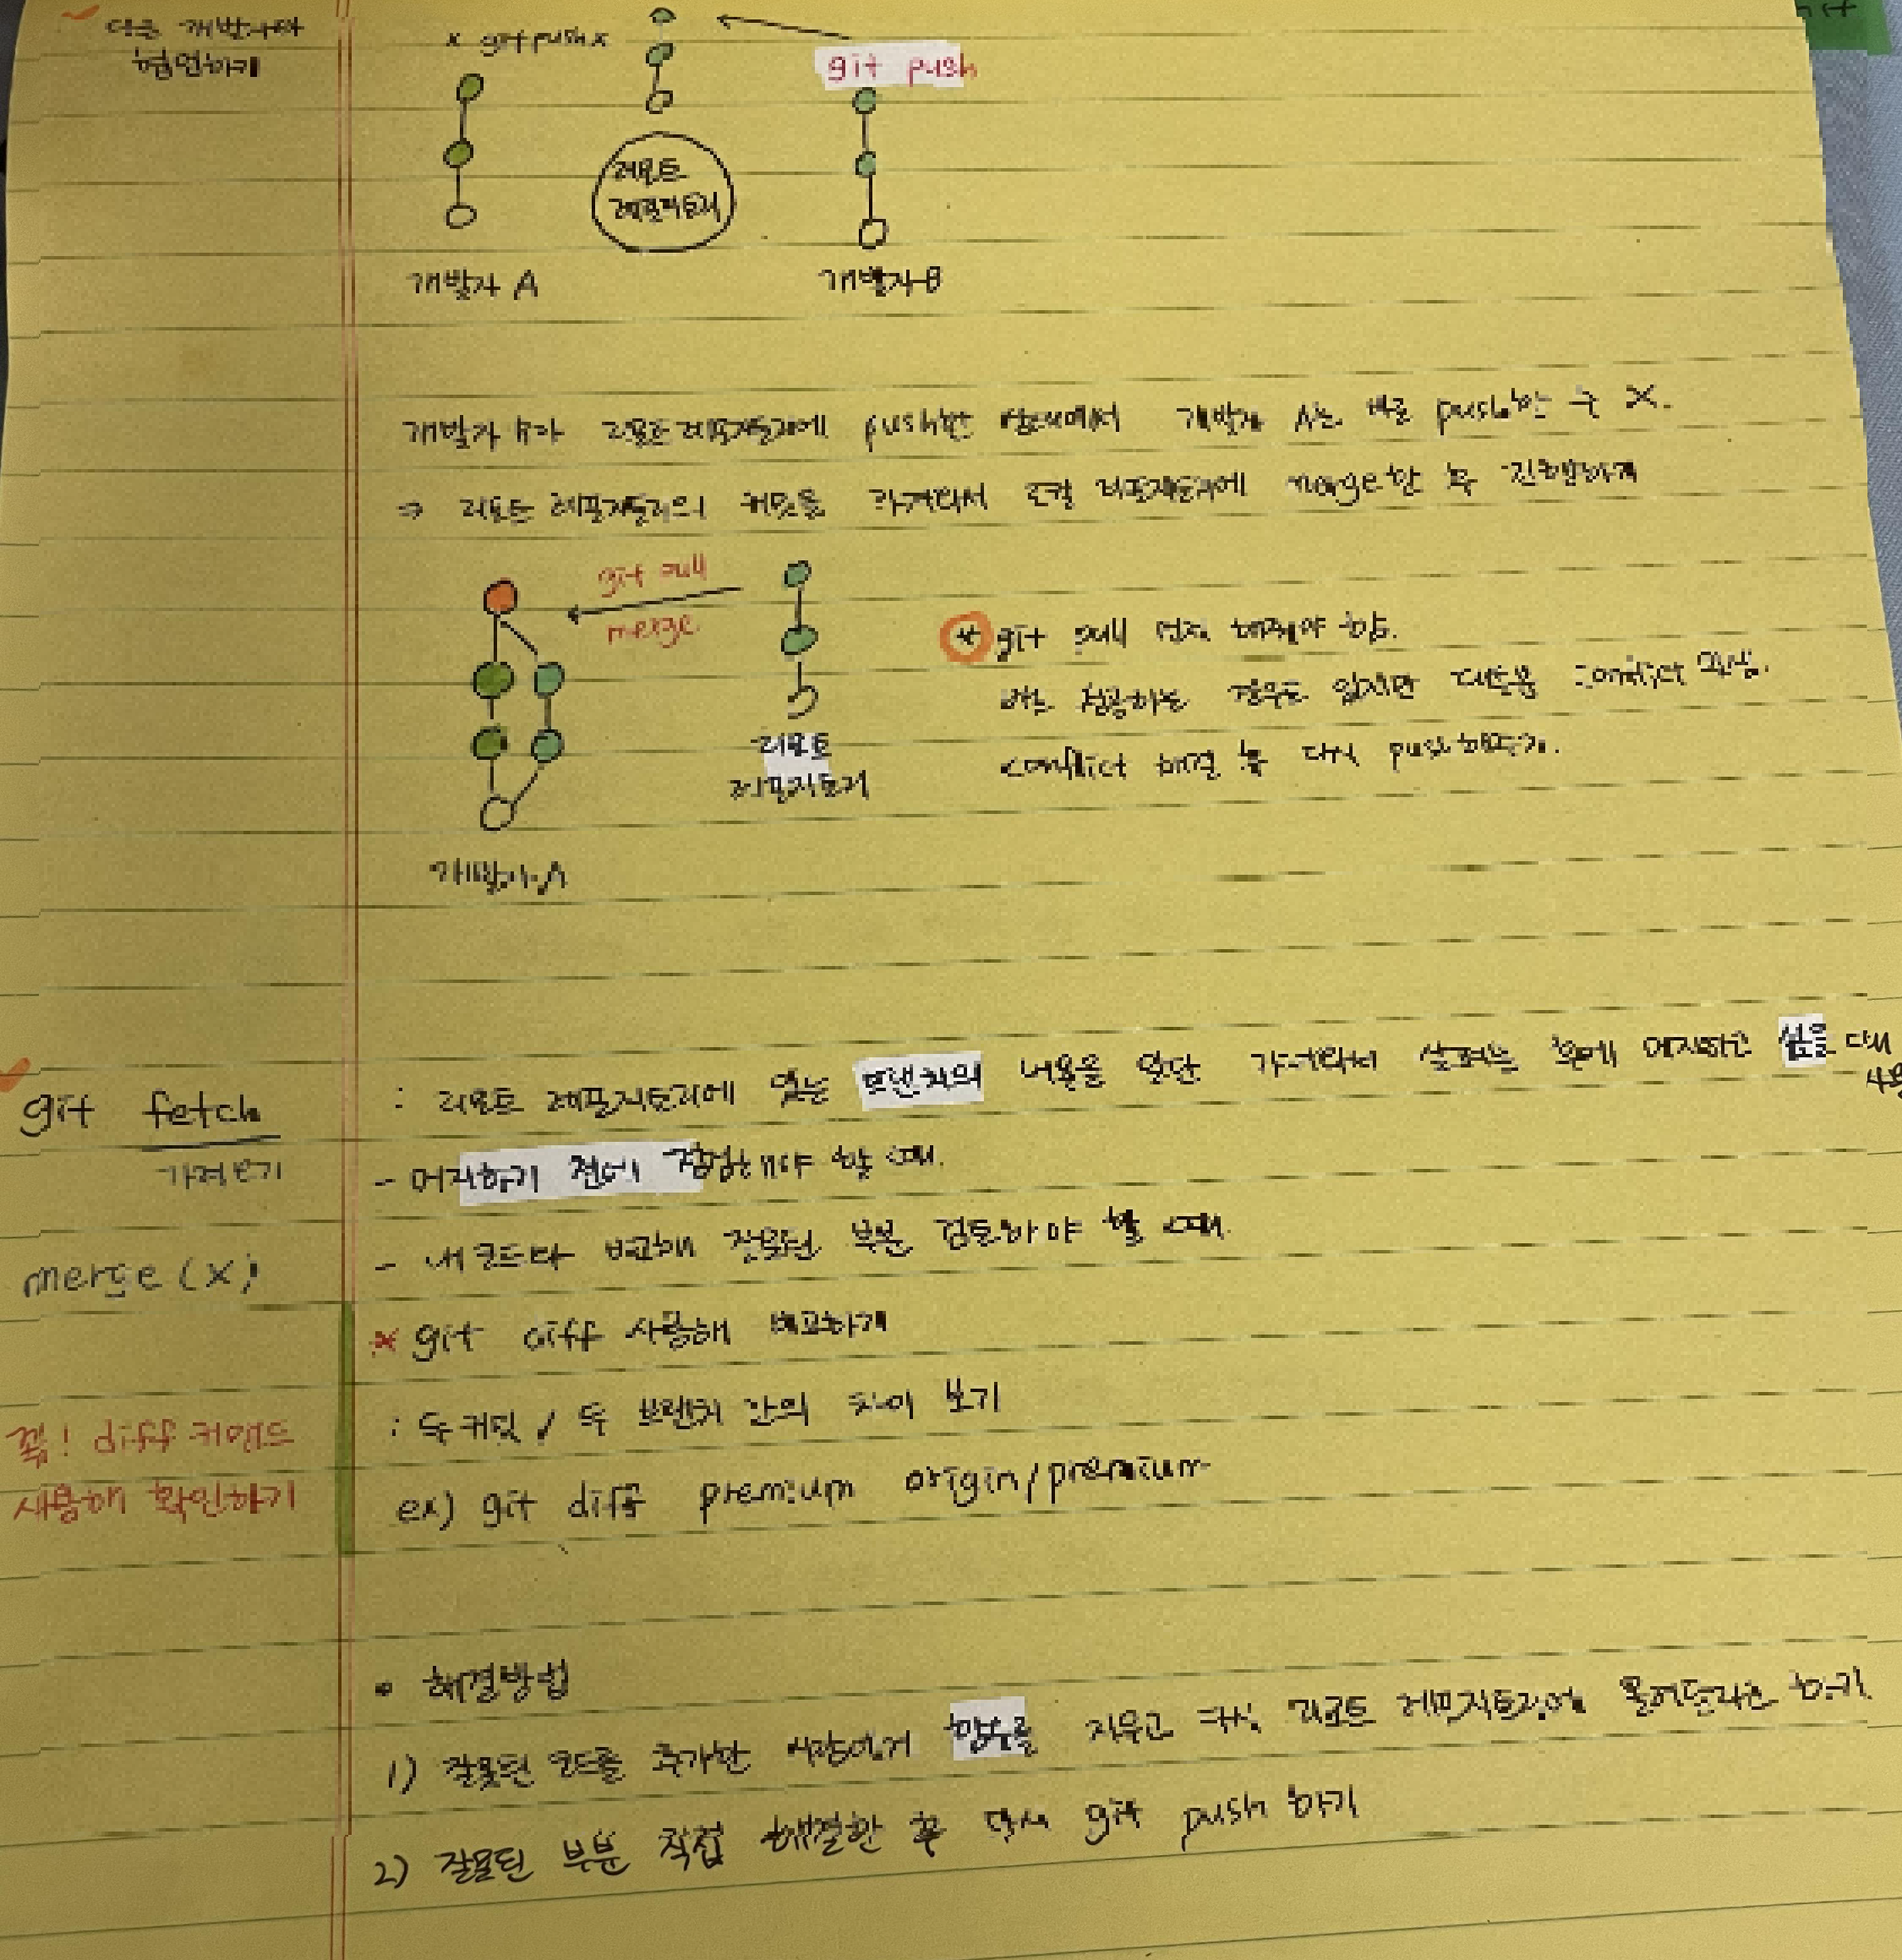 다른 개발자와
협업하기
x git push x
git push
리모트
레포지토리
개발자 A
개발자 B
개발자 B가 리모트 레포지토리에 push한 상태에서 개발자 A는 바로 push할 수 X.
⇒ 리모트 레포지토리의 커밋을 가져와서 로컬 레포지토리에 merge한 후 진행하기
git pull
merge
리모트
레포지토리
개발자 A
* git pull 먼저 해줘야 함.
바로 성공하는 경우도 있지만 대부분 conflict 발생.
conflict 해결 후 다시 push해주기.
git fetch
가져오기
merge (x)
: 리모트 레포지토리에 있는 브랜치의 내용을 일단 가져와서 살펴본 후에 머지하고 싶을 때
사용
- 머지하기 전에 점검해야 할 때.
- 내 코드랑 비교해 잘못된 부분 검토해야 할 때.
* git diff 사용해 비교하기
: 두 커밋 / 두 브랜치 간의 차이 보기
ex) git diff premium origin/premium
꼭! diff 커맨드
사용해 확인하기
• 해결방법
1) 잘못된 코드를 추가한 사람에게 함수를 지우고 다시 리모트 레포지토리에 올려달라고 하기
2) 잘못된 부분 직접 해결한 후 다시 git push 하기